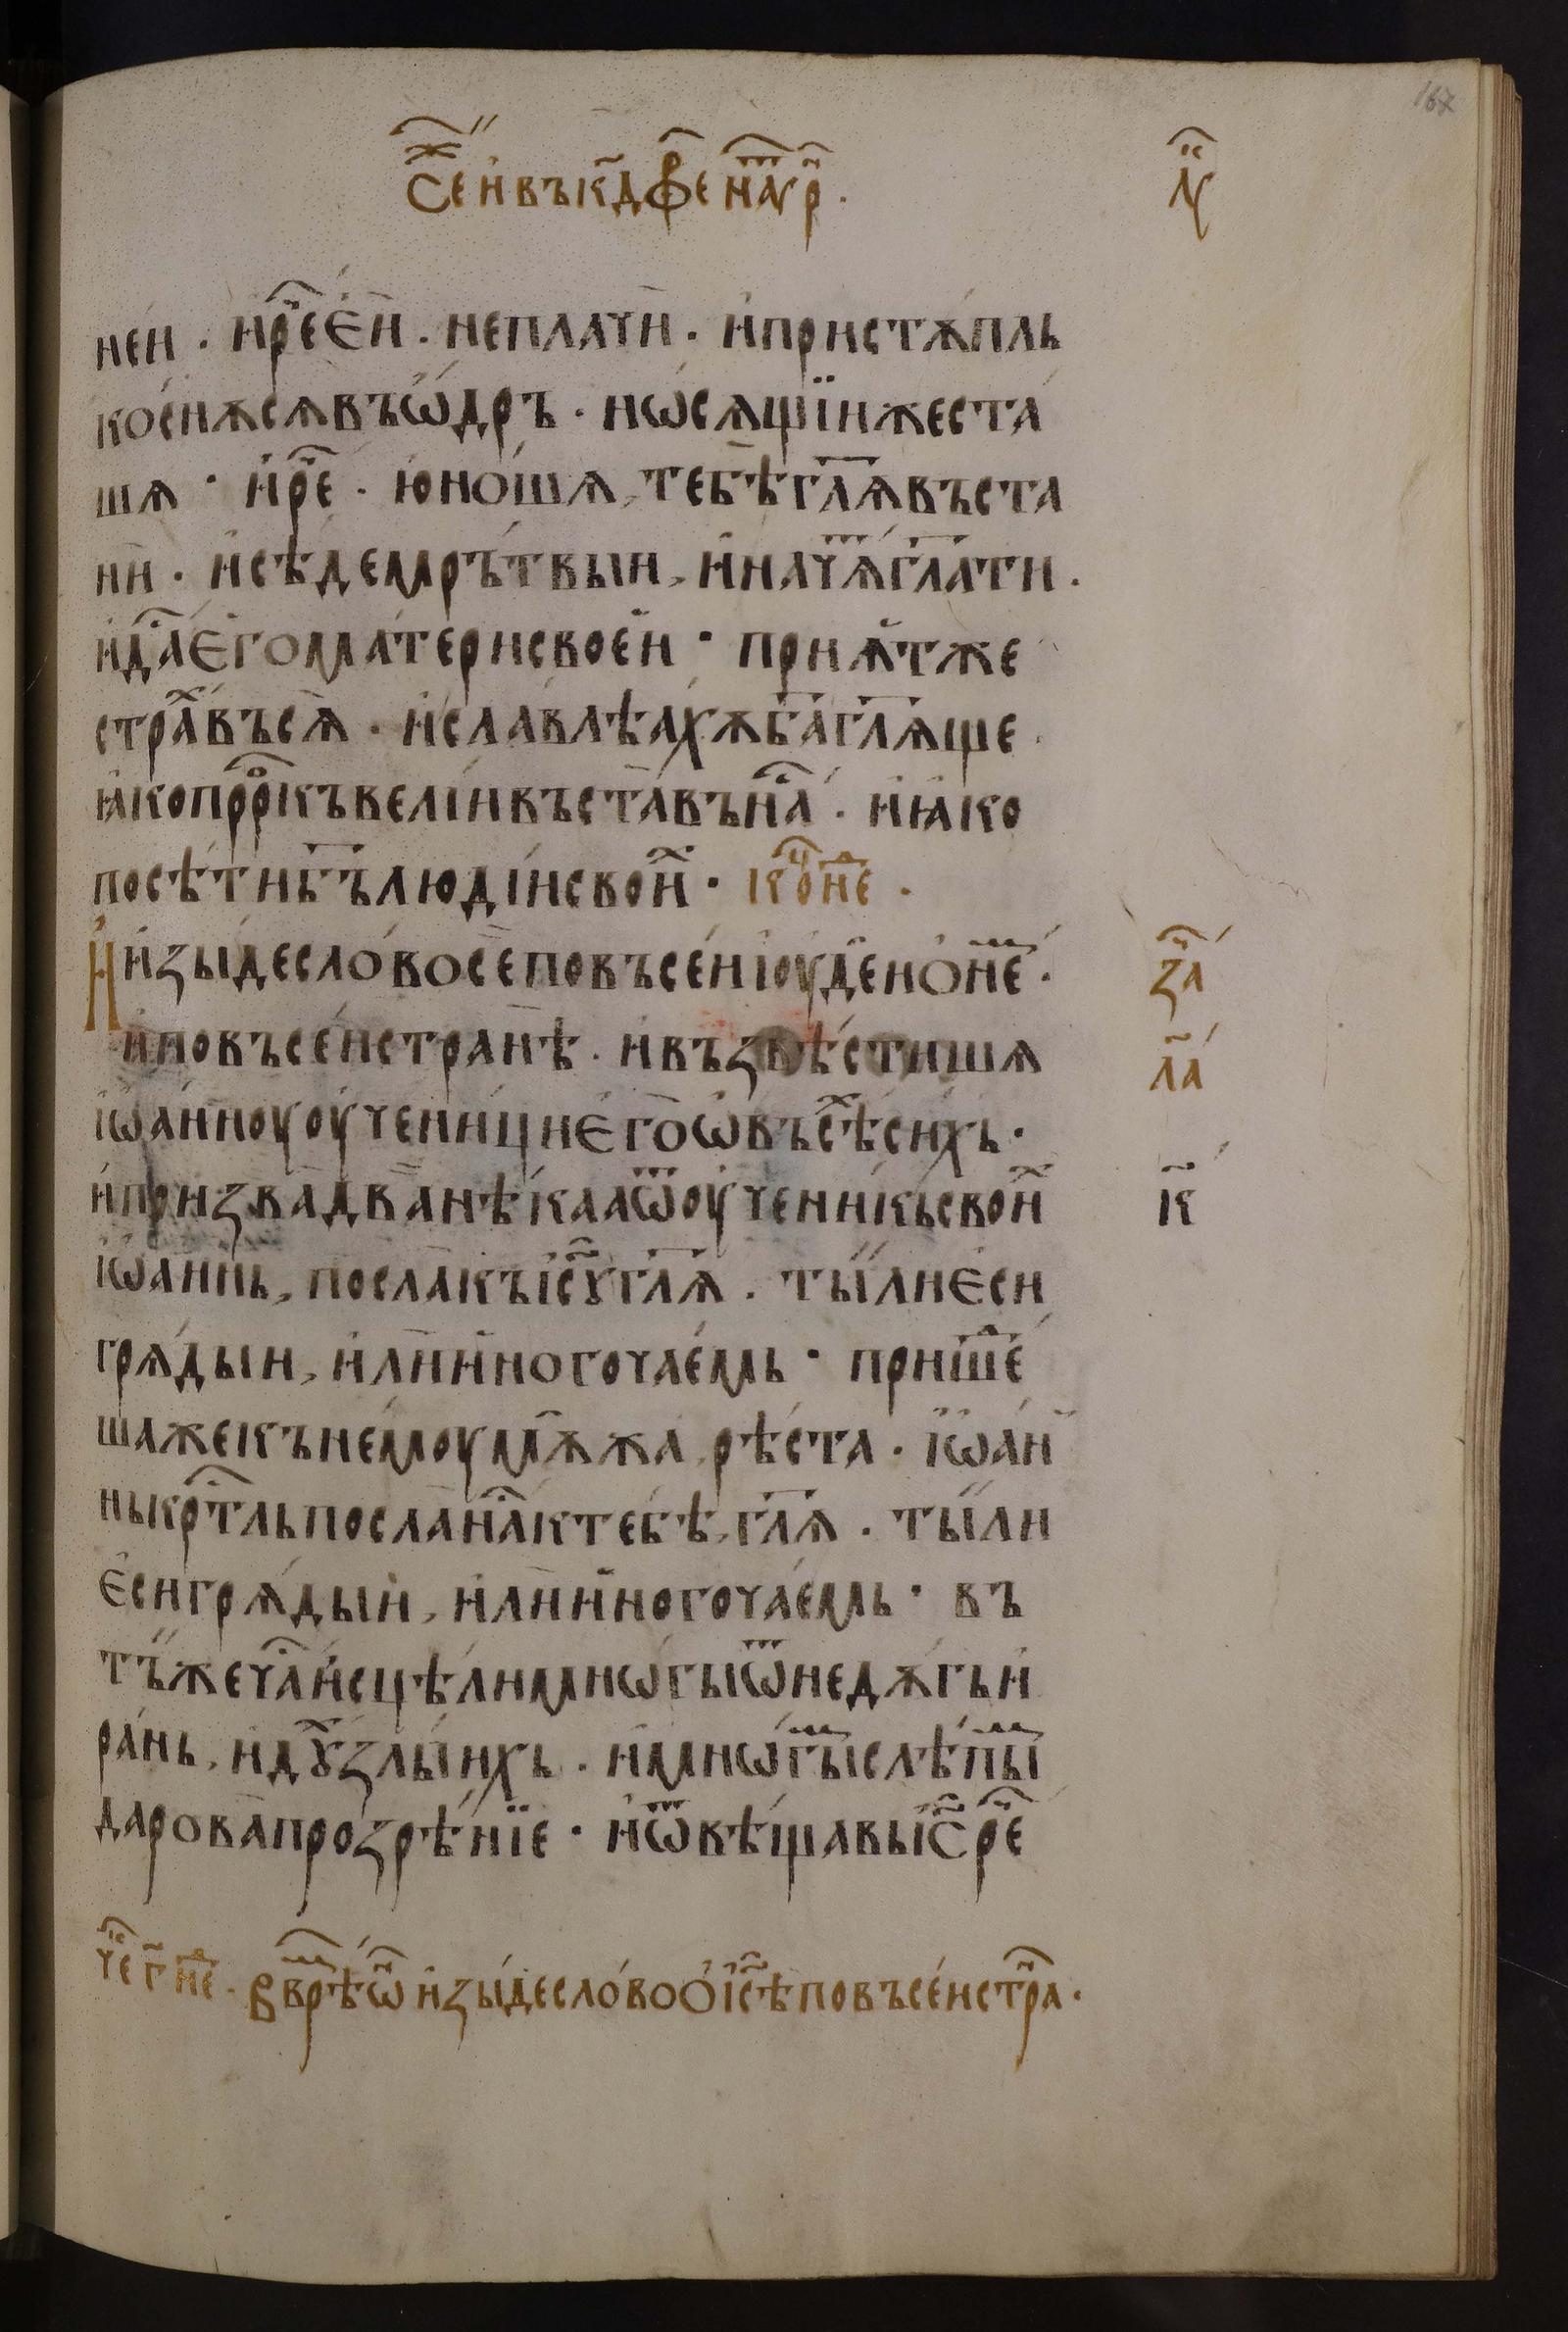 167
Се́ж и҆ въ к҃д феⷡ҇ нⷮарⷬ҇ ·
Лⷦ҇
не́и · и҆ рⷱ҇е є҆́и · не пла́чи · и҆ пристѫ́пль
косн́ѫ сѧ въ ѡ҆́дръ · носѧщїи же ста́
шѧ · и҆ рⷱ҇е · ю҆но́шѧ, тебѣ гл҃ѧ въста
ни · и҆ сѣ́де мръ́твыи, и҆ начѧⷮ гл҃ати ·
и҆ дⷭ҇а є҆го́ ма́тери свое́и · приѧ́т же
страⷯ въсѧ̀ · и҆ сла́влѣахѫ ба҃ гл҃ѧще ·
ꙗ҆ко прⷪ҇ркъ ве́лїи въста́ въ нⷭ҇а · и҆ ꙗ҆ко
посѣти́ бъ҃ лю́дїи своиⷯ · коⷰ҇ неⷣ ·
И҆ и҆зы́де сло́во сѐ по въсе́и і҆оуде́и ѻ҆ неⷨ ·
и҆ по въсе́и странѣ̀ · и҆ възвѣсти́шѧ
і҆ѡа́нноу оу҆чени́ци є҆го̀ ѡ҆ въсѣⷯ си́хъ ·
и҆ призва̀ два̀ нѣ́каа ѿ оу҆чени́къ своиⷯ
і҆ѡа́ннь, посла̀ къ і҆с҃ꙋ гл҃ѧ · ты́ ли є҆си
грѧды́и, и҆лѝ и҆но́го ча́емь · прише́ⷣ
ша же къ не́моу мѫ́жа, рѣ́ста · і҆ѡа́н
нь крⷭ҇тль посла̀ нⷭ҇а к тебѣ̀, гл҃ѧ · ты́ ли
є҆си грѧды́и, и҆лѝ и҆но́го ча́емь · въ
тъ́ же чⷭ҇а и҆сцѣ́ли мнѡ́гы ѿ недѫ́гь и҆
ра́нь, и҆ дꙋⷯ злы́ихь · и҆ мнѡ́гыⷨ слѣпыⷨ
дарова̀ прозрѣ́нїе · и҆ ѿвѣщавь і҆с҃ рⷱ҇е
заⷱ҇
ла҃
к҃
чеⷭ҇ г҃ неⷣ · В врѣⷨ ѡⷩ҇ и҆зы́де сло́во ѻ҆ і҆с҃ѣ по въсе́и страⷩ҇ ·